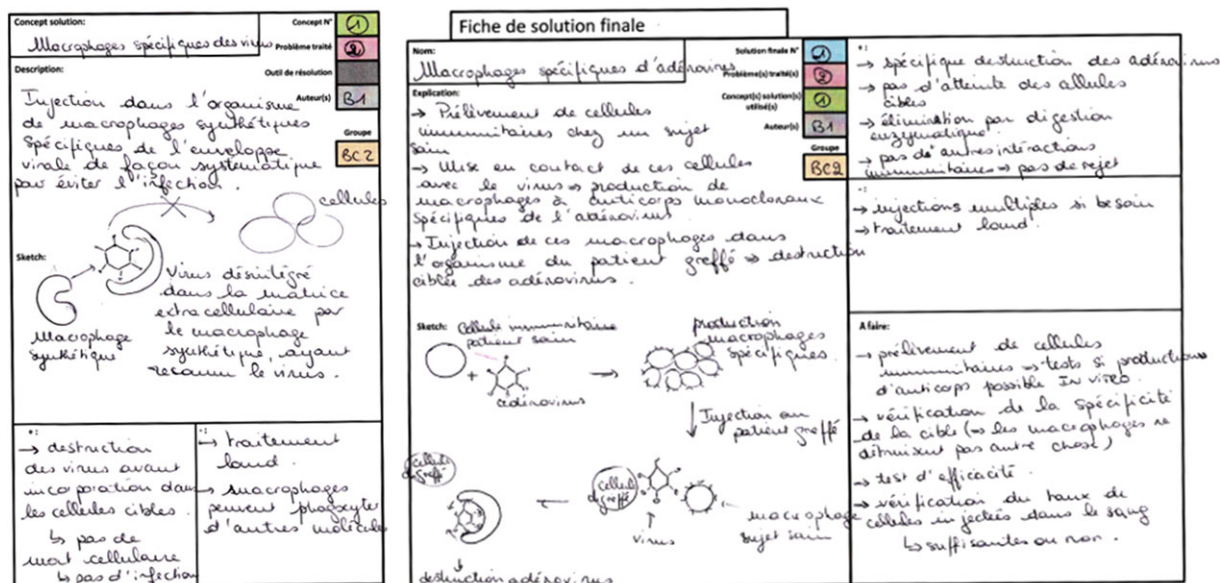 Concept solution:
Macrophages spécifiques des virus
Concept N°
1
Problème traité
2
Outil de résolution
Auteur(s)
B1
Groupe
BC2
Description:
Injection dans l'organisme
de macrophages synthétiques
spécifiques de l'enveloppe
virale de façon systématique
par éviter l'infection.
cellules
Sketch:
Macrophage
synthétique
Virus désintégré
dans la matrice
extracellulaire par
le macrophage
synthétique, ayant
reconnu le virus.
+:
→ destruction
des virus avant
incorporation dans
les cellules cibles.
↳ pas de
mort cellulaire
↳ pas d'infection
-:
→ traitement
lourd.
→ macrophages
peuvent phagocyter
d'autres molécules
Fiche de solution finale
Nom:
Macrophages spécifiques d'adénovirus
Solution finale N°
1
Problème(s) traité(s)
2
Concept(s) solution(s)
utilisé(s)
1
Auteur(s)
B1
Groupe
BC2
Explication:
→ Prélèvement de cellules
immunitaires chez un sujet
sain
→ Mise en contact de ces cellules
avec le virus ⇒ production de
macrophages à anticorps monoclonaux
spécifiques de l'adénovirus.
→ Injection de ces macrophages dans
l'organisme du patient greffé ⇒ destruction
ciblée des adénovirus.
Sketch:
Cellule immunitaire
patient sain
+
adénovirus
production
macrophages
spécifiques.
Injection au
patient greffé
cellule
du greffé
cellule
du greffé
virus
macrophage
sujet sain
destruction adénovirus
+:
→ spécifique destruction des adénovirus
→ pas d'atteinte des cellules
cibles
→ élimination par digestion
enzymatique.
→ pas d'autres interactions
immunitaires ⇒ pas de rejet
-:
→ injections multiples si besoin
→ traitement lourd.
A faire:
→ prélèvement de cellules
immunitaires ⇒ tests si productions
d'anticorps possible In vitro.
→ vérification de la spécificité
de la cible (⇒ les macrophages ne
détruisent pas autre chose)
→ test d'efficacité.
→ vérification du taux de
cellules injectées dans le sang
↳ suffisantes ou non.